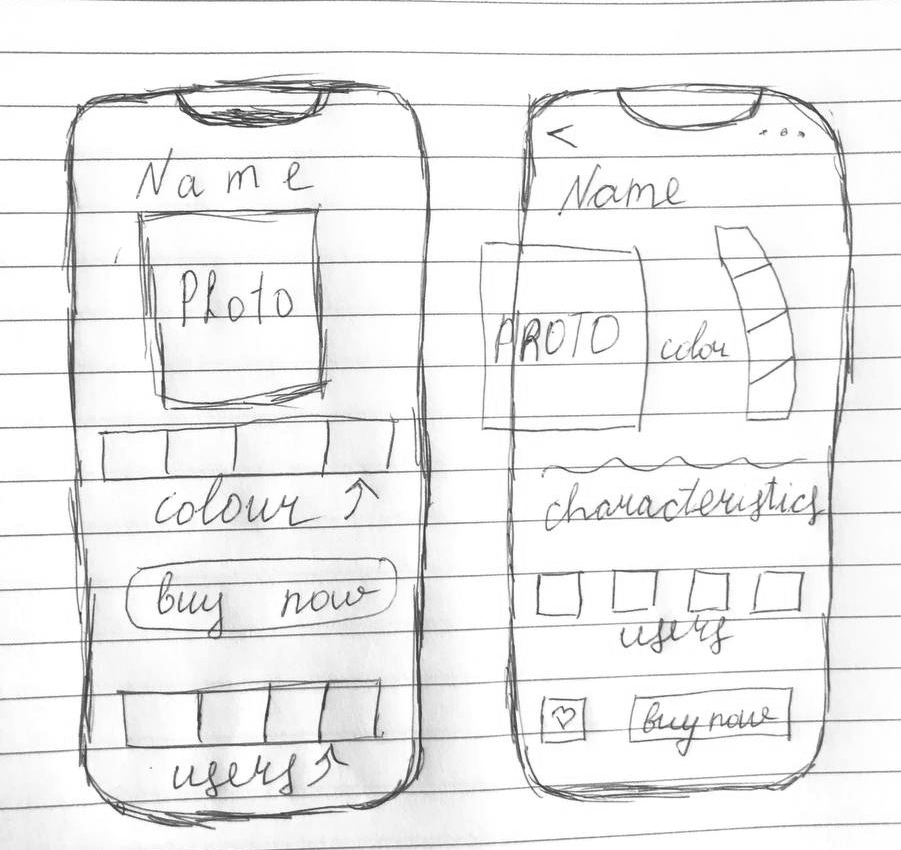 Name
Photo
colour
buy now
users
<
Name
PHOTO
color
characteristics
users
buy now